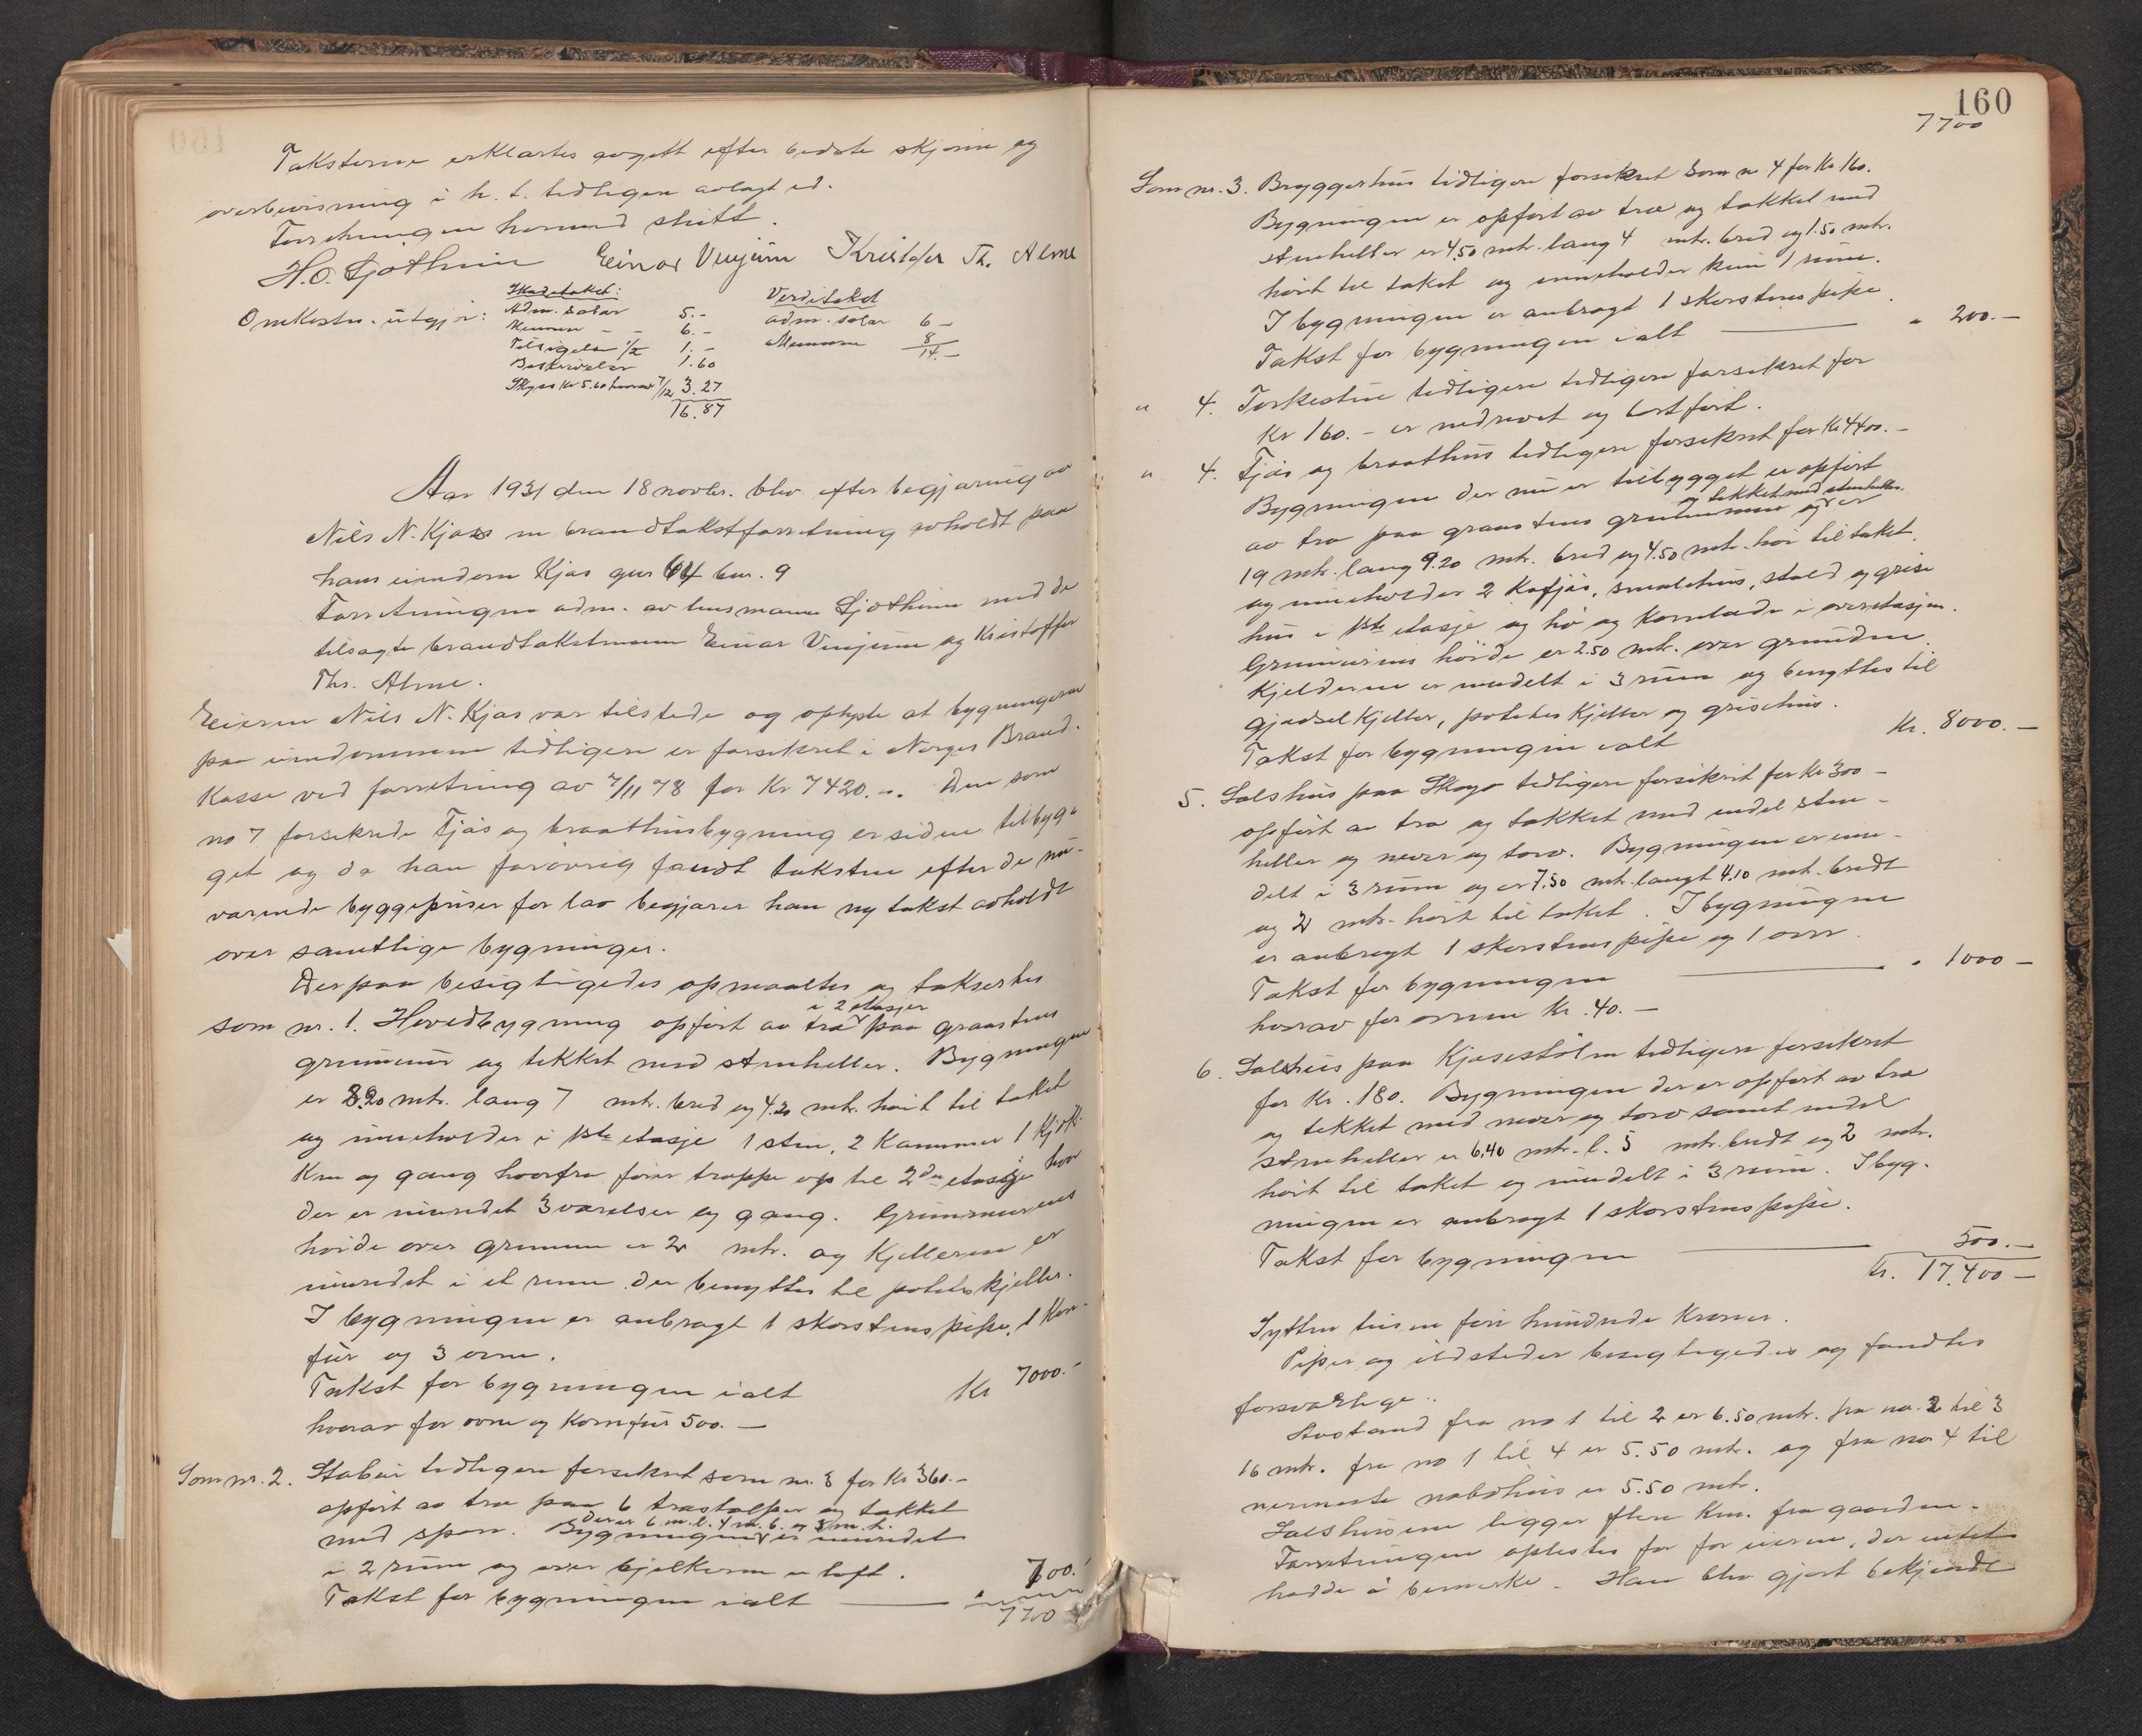 Taksterne erklærtes avgitt efter bedste skjønn og
overbevisning i h. t. tidligere avlagt ed.
Forretningen hermed slutt.
H.O. Gjøthun Einar Venjum Kristofer Th. Alme
Omkostn. utgjør:
Skadetakst:
Adm. salar 5.-
Mennene - - 6.-
Tilsigelse 1/2 1.-
Beskrivelse 1.60
Skyss Kr 5.60 hvorav 7/12 3.27
16.87
Verditakst
adm. salar 6 -
Mennene 8
14.-
Aar 1931 den 18 novbr. blev efter begjæring av
Nils N. Kjøs en brandtakstforretning avholdt paa
hans eiendom Kjøs gnr 64 bnr. 9
Forretningen adm. av lensmann Gjøthun med de
tilsagte brandtakstmenn Einar Venjum og Kristoffer
Ths. Alme.
Eieren Nils N. Kjøs var tilstede og oplyste at bygningerne
paa eiendommen tidligere er forsikret i Norges Brand-
kasse ved forretning av 7/11 78 for Kr 7420.-. Den som
no 7 forsikrede Fjøs og braathusbygning er siden tilbyg-
get og da han forøvrig fandt taksten efter de nu-
værende byggepriser for lav begjærer han ny takst avholdt
over samtlige bygninger.
Derpaa besigtigedes opmaaltes og taksertes
som nr. 1. Hovedbygning opført av træ i 2 etasjer paa graastens
grunnmur og tekket med stenheller. Bygningen
er 8.20 mtr. lang 7 mtr. bred og 4.20 mtr. høit til taket
og inneholder i 1ste etasje 1 stue, 2 Kammer 1 Kjøk-
ken og gang hvorfra fører trappe op til 2den etasje hvor
der er innredet 3 værelser og gang. Grunnmurens
høide over grunnen er 2 mtr. og Kjelleren er
innredet i et rum der benyttes til poteteskjeller.
I bygningen er anbragt 1 skorstenspipe, 1 Kom-
fur og 3 ovne.
Takst for bygningen ialt Kr 7000.-
hvorav for ovne og Komfur 500.-
Som nr. 2. Stabur tidligere forsikret som nr. 3 for Kr 360.-
opført av træ paa 6 træstolper og tækket
med spon. Bygningen der er 6 m. l. 4 m. b. og 3 m. h. er innredet
i 2 rum og over bjelkerne er loft.
Takst for bygningen ialt 700.-
7700
160
7700
Som nr. 3. Bryggerhus tidligere forsikret som nr 4 for Kr 160.
Bygningen er opført av træ og takket med
stenheller er 4.50 mtr. lang 4 mtr. bred og 1.50 mtr.
høit til taket og inneholder kun 1 rum.
I bygningen er anbragt 1 skorstenspipe.
Takst for bygningen ialt " 200.-
" 4. Torkestue tidligere tidligere forsikret for
Kr 160.- er nedrevet og bortført.
" 4. Fjøs og braathus tidligere forsikret for Kr 4400.-
Bygningen der nu er tilbygget er opført
av træ paa graastens grunnmur og tekket med stenheller og er
19 mtr. lang 9.20 mtr. bred og 4.50 mtr. høi til taket.
og inneholder 2 Kufjøs, smalehus, stald og grise
hus i 1ste etasje og hø og Kornlade i overetasjen.
Grunnmurens høide er 2.50 mtr. over grunden.
Kjelderen er inndelt i 3 rum og benyttes til
gjødselkjeller, poteteskjeller og grisehus.
Takst for bygningen ialt Kr. 8000.-
5. Sælshus paa Skogo tidligere forsikret for Kr 300 -
opført av træ og takket med endel sten-
heller og never og torv. Bygningen er inn-
delt i 3 rum og er 7.50 mtr. langt 4.10 mtr. bredt
og 2 mtr. høit til taket. I bygningen
er anbragt 1 skorstenspipe og 1 ovn.
Takst for bygningen " 1000 -
hvorav for ovnen Kr. 40.-
6. Sælshus paa Kjøsestølen tidligere forsikret
for Kr. 180. Bygningen der er opført av træ
og tekket med never og torv samt endel
stenheller er 6.40 mtr. l. 5 mtr. bredt og 2 mtr.
høit til taket og inndelt i 3 rum. I byg-
ningen er anbragt 1 skorstenspipe.
Takst for bygningen 500.-
Kr. 17.400 -
Sytten tusen fire hundrede Kroner.
Piper og ildsteder besigtigedes og fandtes
forsvarlige.
Avstand fra no 1 til 2 er 6.50 mtr. fra no. 2 til 3
16 mtr. fra no 1 til 4 er 5.50 mtr. og fra no 4 til
nermeste nabohus er 5.50 mtr.
Sælshusene ligger flere Km. fra gaarden.
Forretningen oplestes for for eieren, der intet
hadde å bemerke. Han blev gjort bekjendt